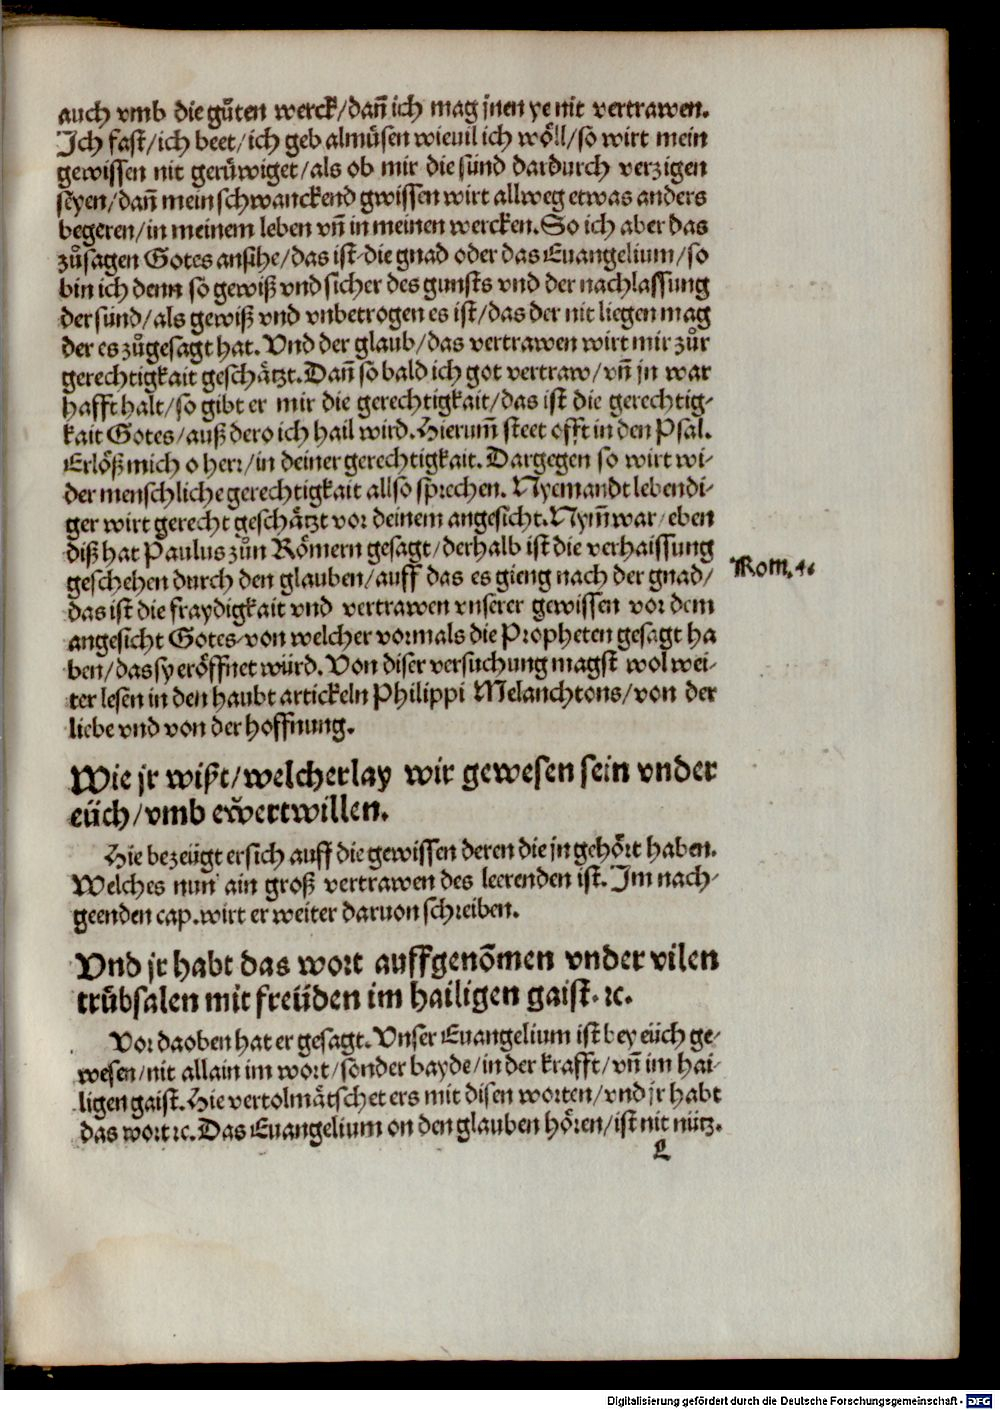 auch vmb die gůten werck/dañ ich mag jnen ye nit vertrawen.
Ich fast/ich beet/ich geb almůsen wieuil ich wöll/so wirt mein
gewissen nit gerüwiget/als ob mir die sünd dardurch verzigen
seyen/dañ mein schwanckend gwissen wirt allweg etwas anders
begeren/in meinem leben vñ in meinen wercken. So ich aber das
zůsagen Gotes ansihe/das ist die gnad oder das Euangelium/so
bin ich denn so gewiß vnd sicher des gunsts vnd der nachlassung
der sünd/als gewiß vnd vnbetrogen es ist/das der nit liegen mag
der es zůgesagt hat. Vnd der glaub/das vertrawen wirt mir zůr
gerechtigkait geschätzt. Dañ so bald ich got vertraw/vñ jn war
hafft halt/so gibt er mir die gerechtigkait/das ist die gerechtig-
kait Gotes/auß dero ich hail wird. Hierum̃ steet offt in den Psal.
Erlöß mich o herr/in deiner gerechtigkait. Dargegen so wirt wi-
der menschliche gerechtigkait allso sprechen. Nyemandt lebendi-
ger wirt gerecht geschätzt vor deinem angesicht. Nym̃ war/eben
diß hat Paulus zůn Römern gesagt/derhalb ist die verhaissung
geschehen durch den glauben/auff das es gieng nach der gnad/
Rom. 4.
das ist die fraydigkait vnd vertrawen vnserer gewissen vor dem
angesicht Gotes von welcher vormals die Propheten gesagt ha
ben/das sy eröffnet würd. Von diser versuchung magst wol wei-
ter lesen in den haubt artickeln Philippi Melanchtons/von der
liebe vnd von der hoffnung.
Wie jr wißt/welcherlay wir gewesen sein vnder
eüch/vmb ewertwillen.
Hie bezeügt er sich auff die gewissen deren die jn gehört haben.
Welches nun ain groß vertrawen des leerenden ist. Im nach-
geenden cap. wirt er weiter daruon schreiben.
Vnd jr habt das wort auffgenõmen vnder vilen
trübsalen mit freüden im hailigen gaist. ꝛc.
Vor daoben hat er gesagt. Vnser Euangelium ist bey eüch ge-
wesen/nit allain im wort/sonder bayde/in der krafft/vñ im hai-
ligen gaist. Hie vertolmätschet ers mit disen worten/vnd jr habt
das wort ꝛc. Das Euangelium on den glauben hören/ist nit nütz.
Digitalisierung gefördert durch die Deutsche Forschungsgemeinschaft - DFG